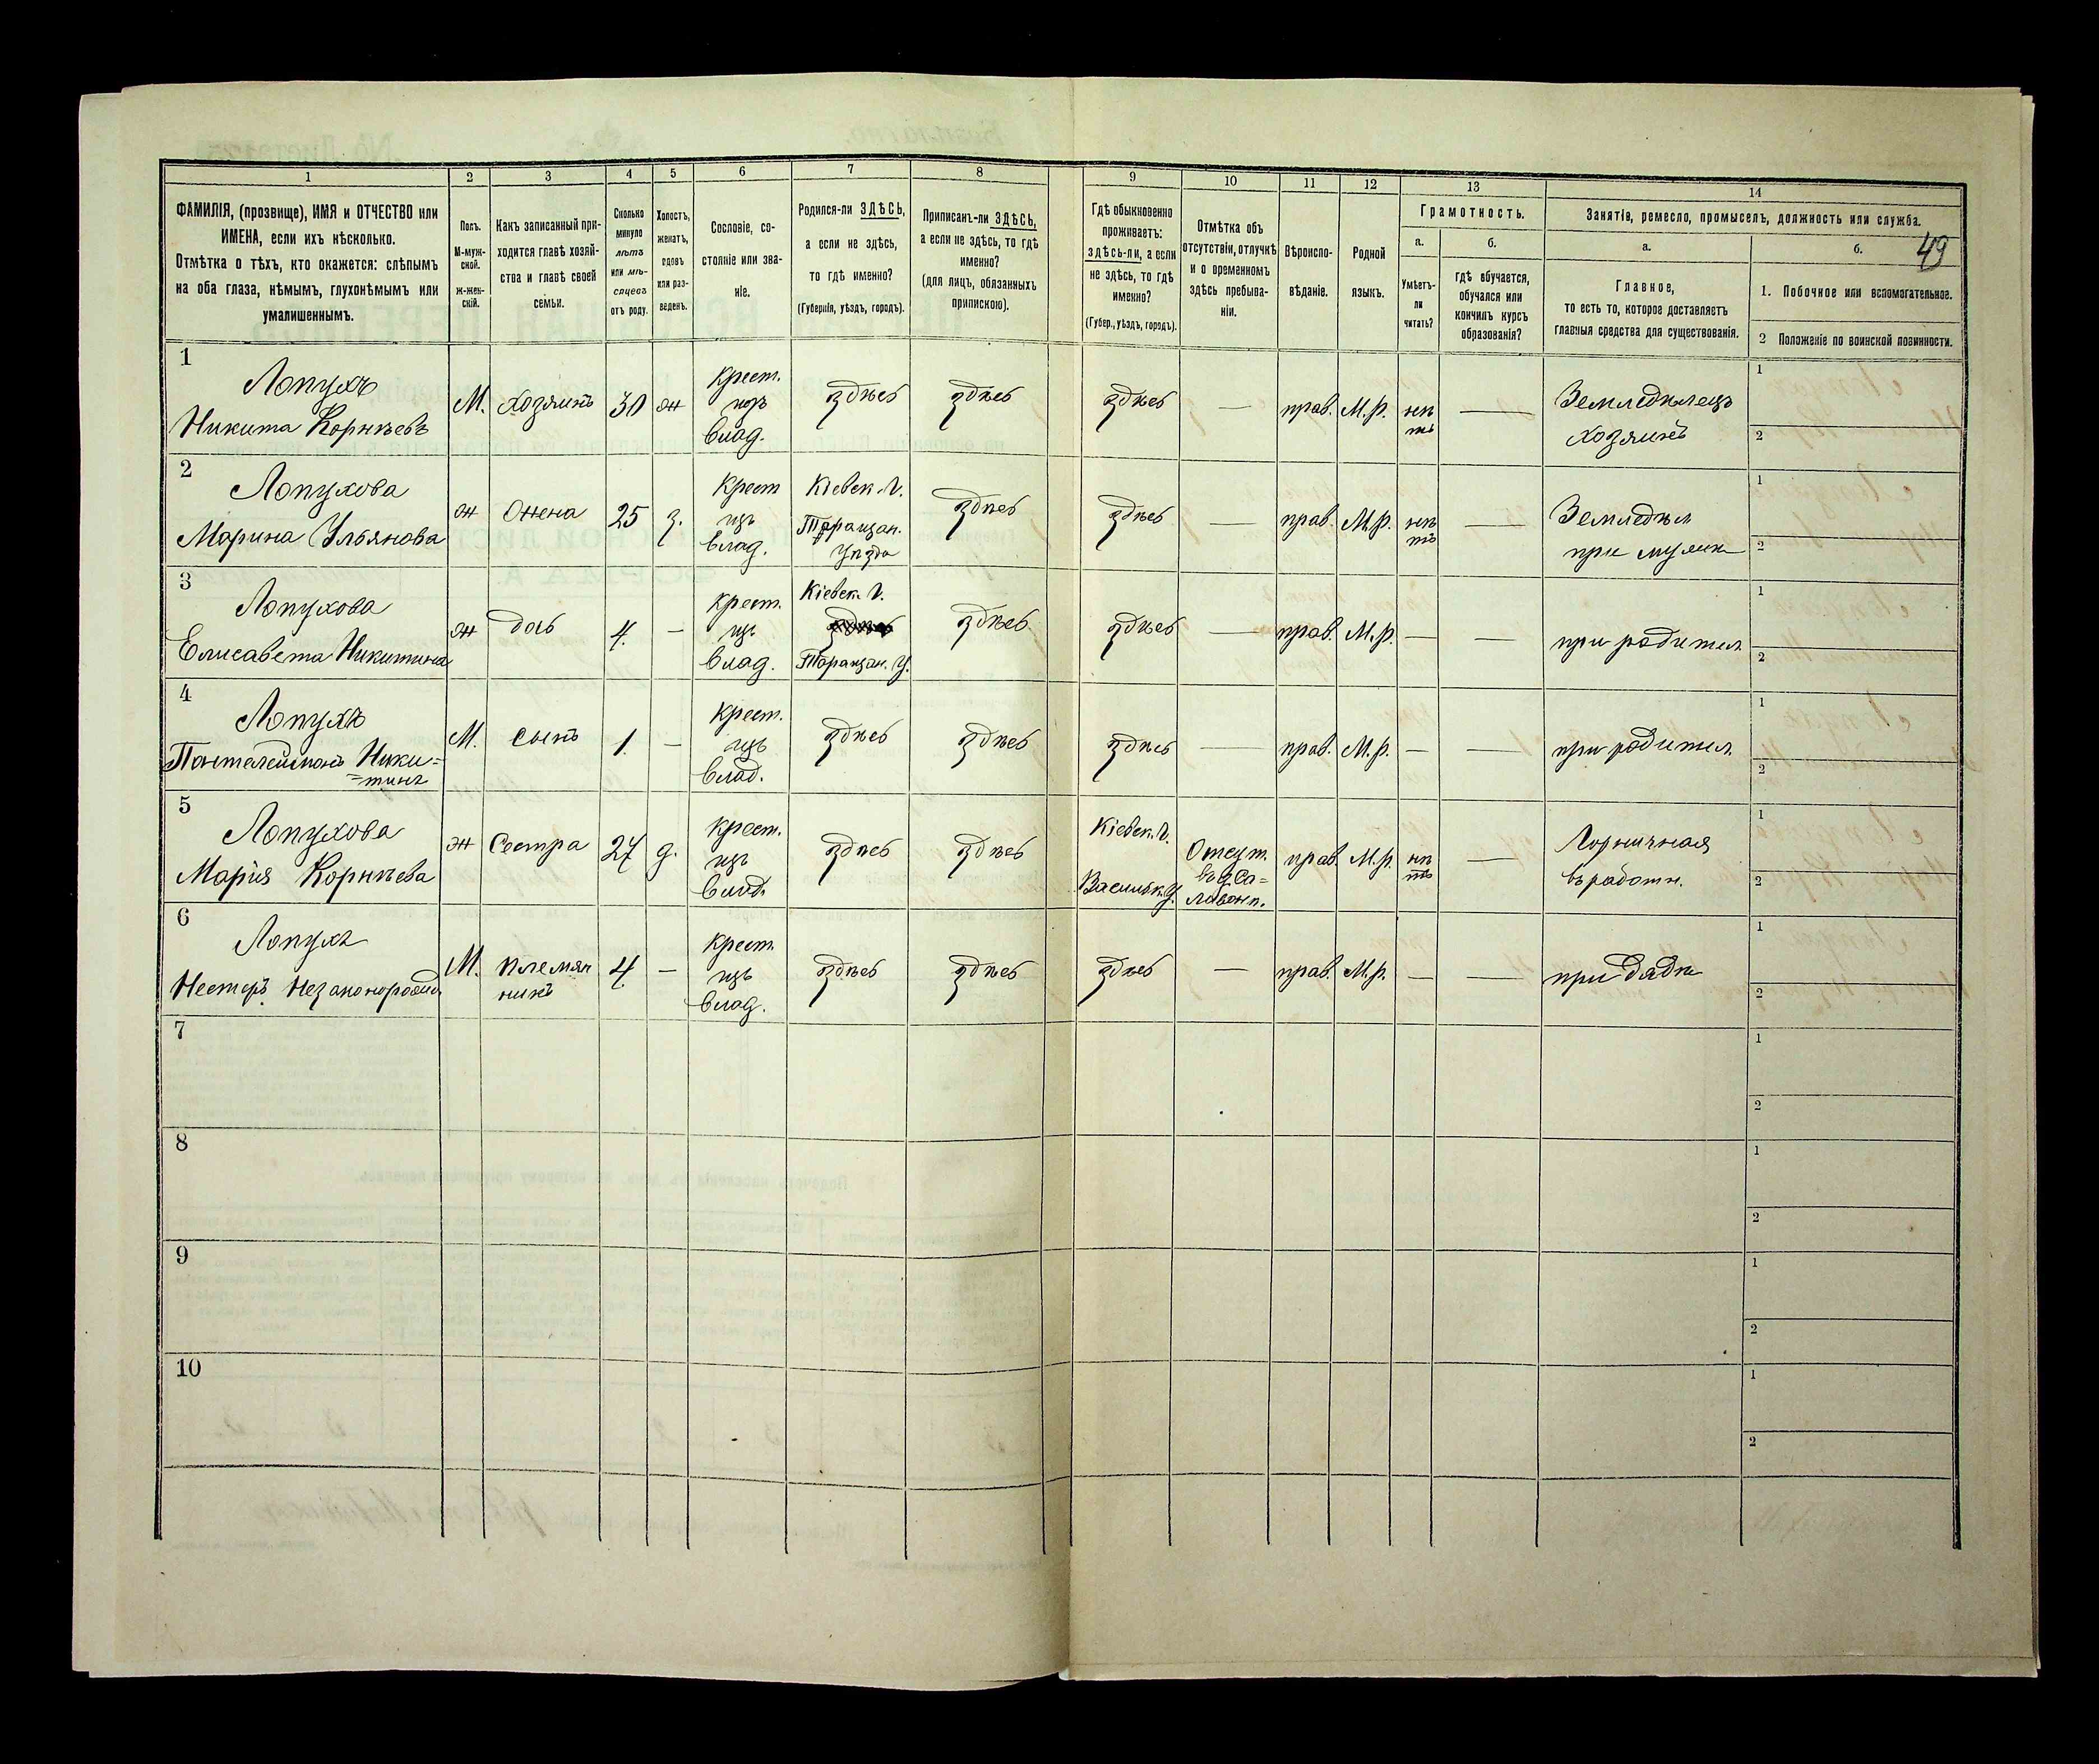 1 2 3 4 5 6 7 8 9 10 11 12 13 14
ФАМИЛІЯ, (прозвище), ИМЯ и ОТЧЕСТВО или
ИМЕНА, если ихъ нѣсколько.
Отмѣтка о тѣхъ, кто окажется: слѣпымъ
на оба глаза, нѣмымъ, глухонѣмымъ или
умалишеннымъ.
Полъ.
М-муж-
ской.
ж-жен-
скій.
Какъ записанный при-
ходится главѣ хозяй-
ства и главѣ своей
семьи.
Сколько
минуло
лѣтъ
или мѣ-
сяцевъ
отъ роду.
Холостъ,
женатъ,
вдовъ
или раз-
веденъ.
Сословіе, со-
стояніе или зва-
ніе.
Родился-ли ЗДѢСЬ,
а если не здѣсь,
то гдѣ именно?
(Губернія, уѣздъ, городъ).
Приписанъ-ли ЗДѢСЬ,
а если не здѣсь, то гдѣ
именно?
(для лицъ, обязанныхъ
припискою).
Гдѣ обыкновенно
проживаетъ:
здѣсь-ли, а если
не здѣсь, то гдѣ
именно?
(Губер., уѣздъ, городъ).
Отмѣтка объ
отсутствіи, отлучкѣ
и о временномъ
здѣсь пребыва-
ніи.
Вѣроиспо-
вѣданіе.
Родной
языкъ.
Грамотность.
а. б.
Умѣетъ-
ли
читать?
гдѣ обучается,
обучался или
кончилъ курсъ
образованія?
Занятіе, ремесло, промыселъ, должность или служба.
а. б.
49
Главное,
то есть то, которое доставляетъ
главныя средства для существованія.
1. Побочное или вспомогательное.
2 Положеніе по воинской повинности.
1
Лопухъ
Никита Корнѣевъ
М.
Хозяинъ
30
ж
Крест.
изъ
влад.
здѣсь
здѣсь
здѣсь
—
прав.
М.р.
нѣ
тъ
—
Земледѣлецъ
хозяинъ
1
2
2
Лопухова
Марина Ульянова
ж
жена
25
з.
Крест
изъ
влад.
Кіевск. Г.
Таращан.
уѣзда
здѣсь
здѣсь
—
прав.
М.р.
нѣ
тъ
—
Земледѣл
при
1
2
3
Лопухова
Елисавета Никитина
ж
дочь
4.
—
крест.
изъ
влад.
Кіевск. Г.
Таращан. у.
здѣсь
здѣсь
—
прав.
М.р.
—
—
при родител
1
2
4
Лопухъ
Пантелеимонъ Ники=
=тинъ
М.
сынъ
1.
—
крест.
изъ
влад.
здѣсь
здѣсь
здѣсь
—
прав.
М.р.
—
—
при родител
1
2
5
Лопухова
Марія Корнѣева
ж
Сестра
27
д.
крест.
изъ
влад.
здѣсь
здѣсь
Кіевск. Г.
Васильк. у.
Отсут.
прав.
М.р.
нѣ
тъ
—
Горничная
въ работн.
1
2
6
Лопухъ
Несторъ Незаконорожд.
М.
племян
никъ
4.
—
крест.
изъ
влад.
здѣсь
здѣсь
здѣсь
—
прав.
М.р.
—
—
при дядѣ
1
2
7
1
2
8
1
2
9
1
2
10
1
2